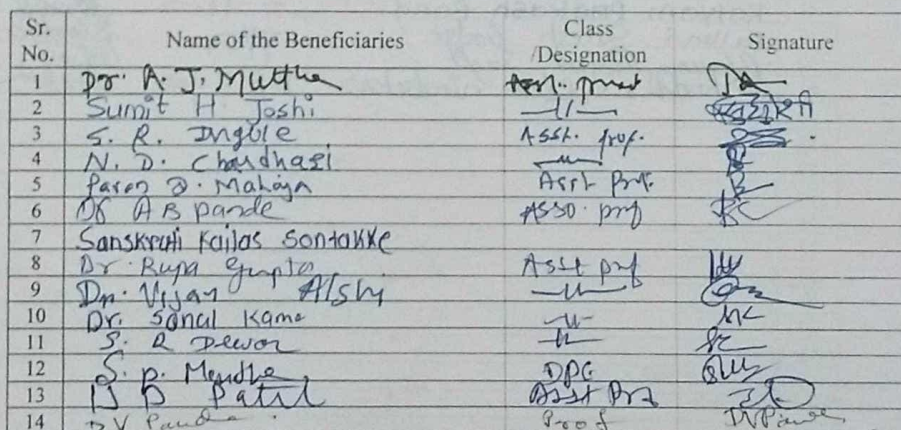 Sr. No. Name of the Beneficiaries Class /Designation Signature
1 Dr. A. J. Mutha Asst. prof
2 Sumit H. Joshi —//—
3 S. R. Ingole Asst. prof.
4 N. D. Chaudhari —//—
5 Mahajan Asst Prof.
6 Dr A B Pande Asso. prof
7 Sanskruti Kailas Sontakke
8 Dr. Rupa Gupta Asst prof
9 Dr. Vijay Alshi —//—
10 Dr. Sonal Kame —//—
11 S. R Dewar —//—
12 S. D. Mendhe DPE
13 D Patil Asst Prof
14 D V Pande Prof DVPande